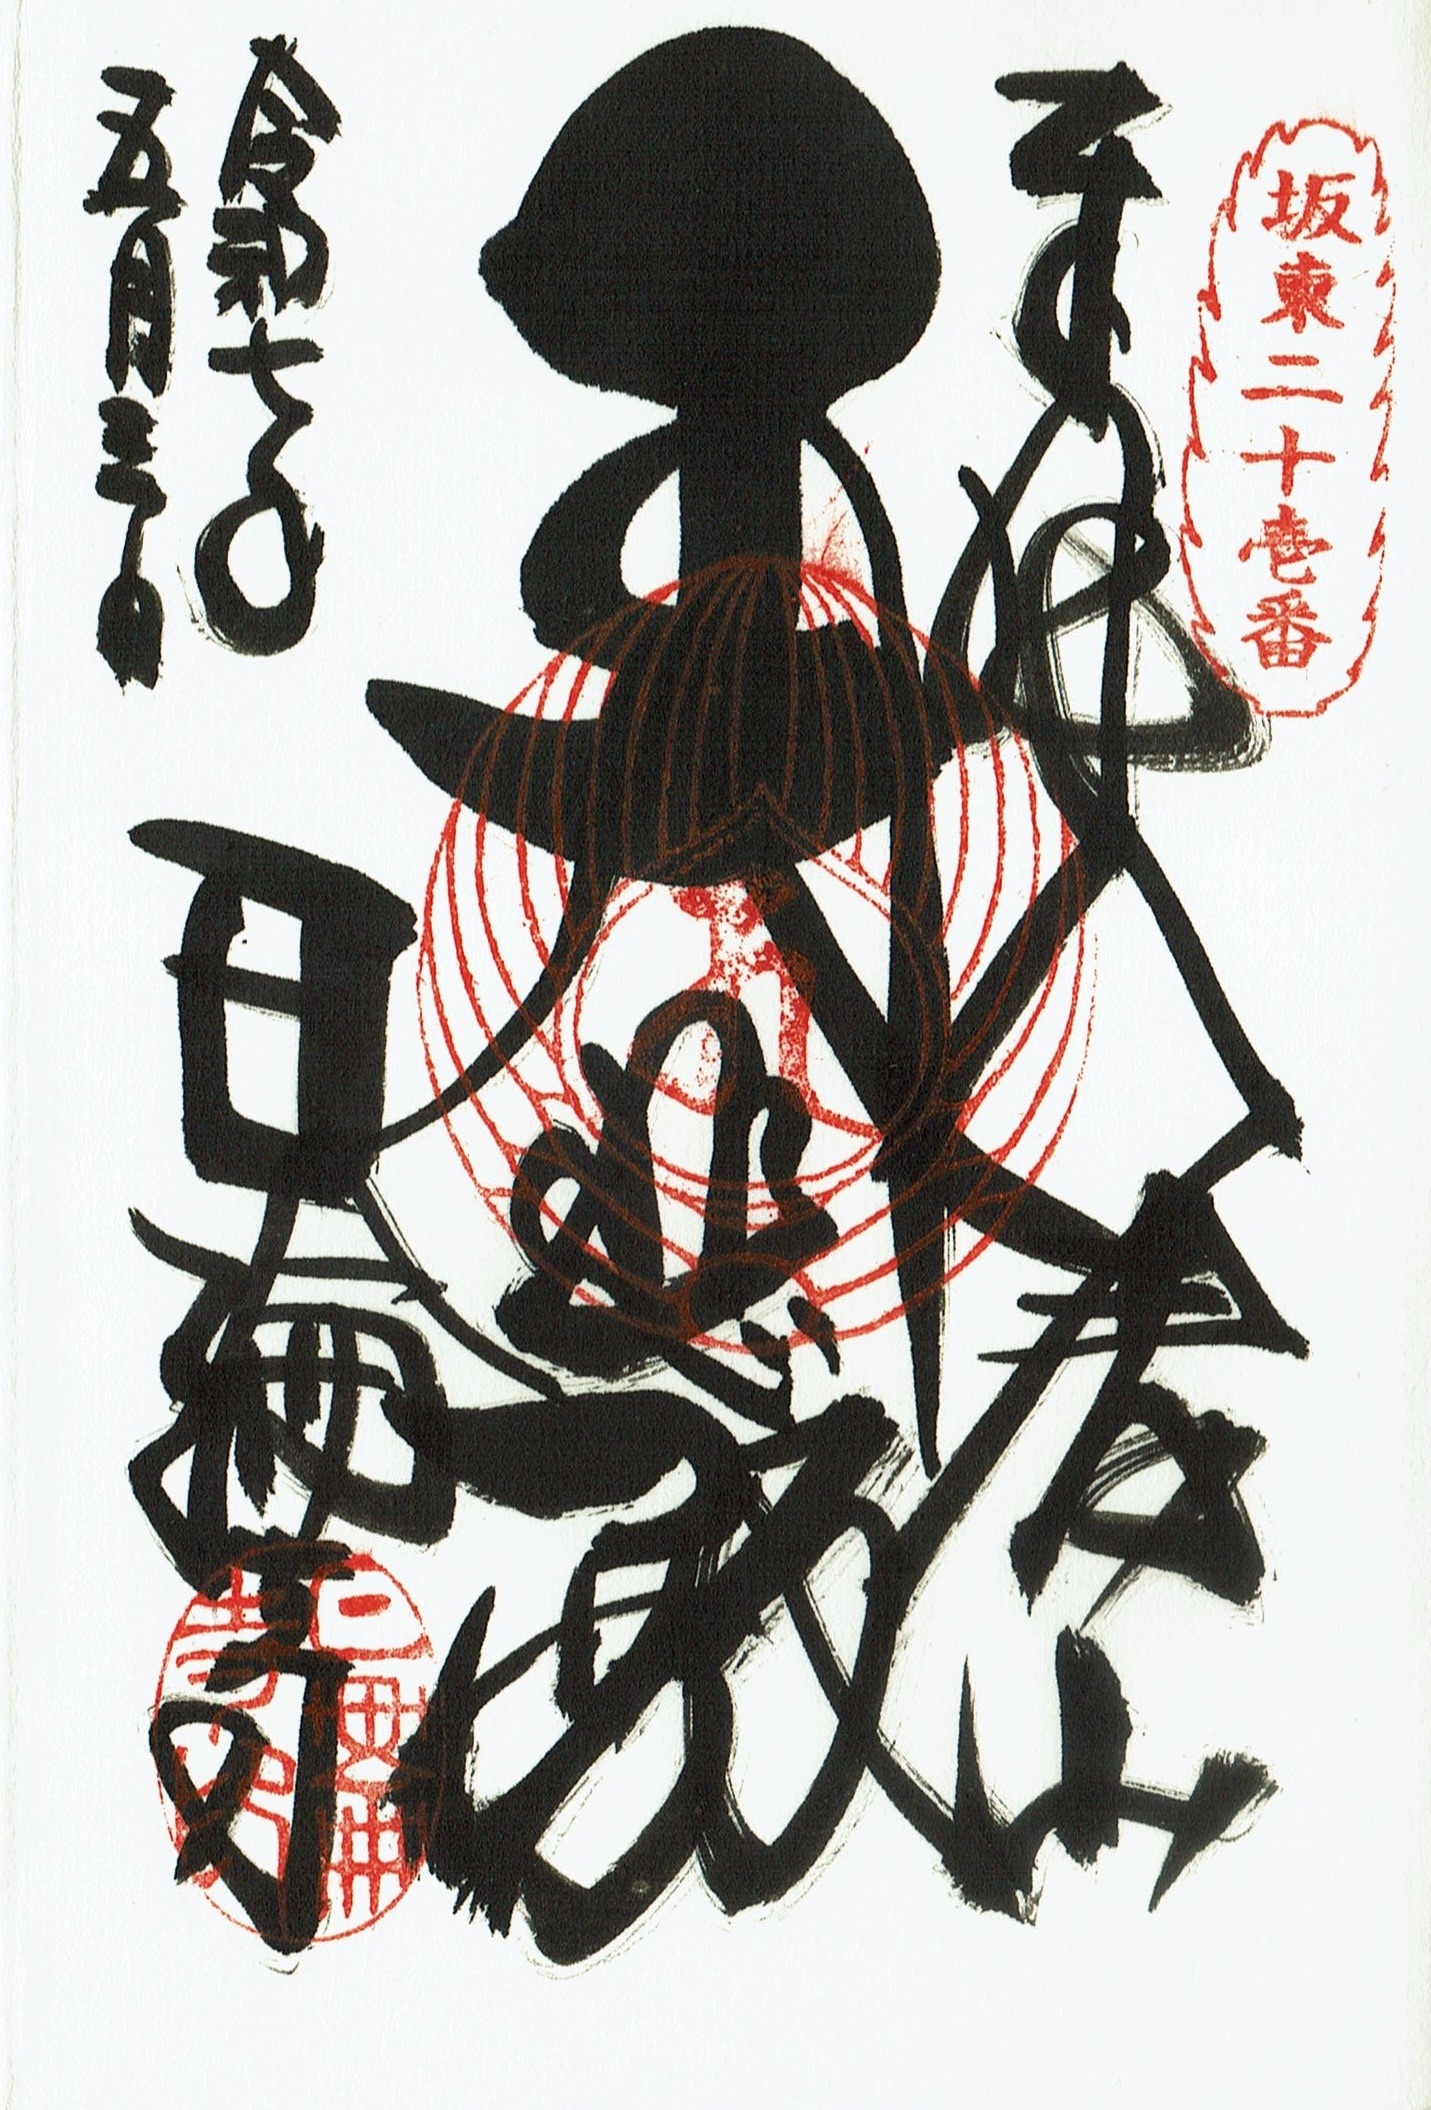 坂東二十壱番
奉拝
八溝山
大悲殿
令和七年
五月三日
日輪寺